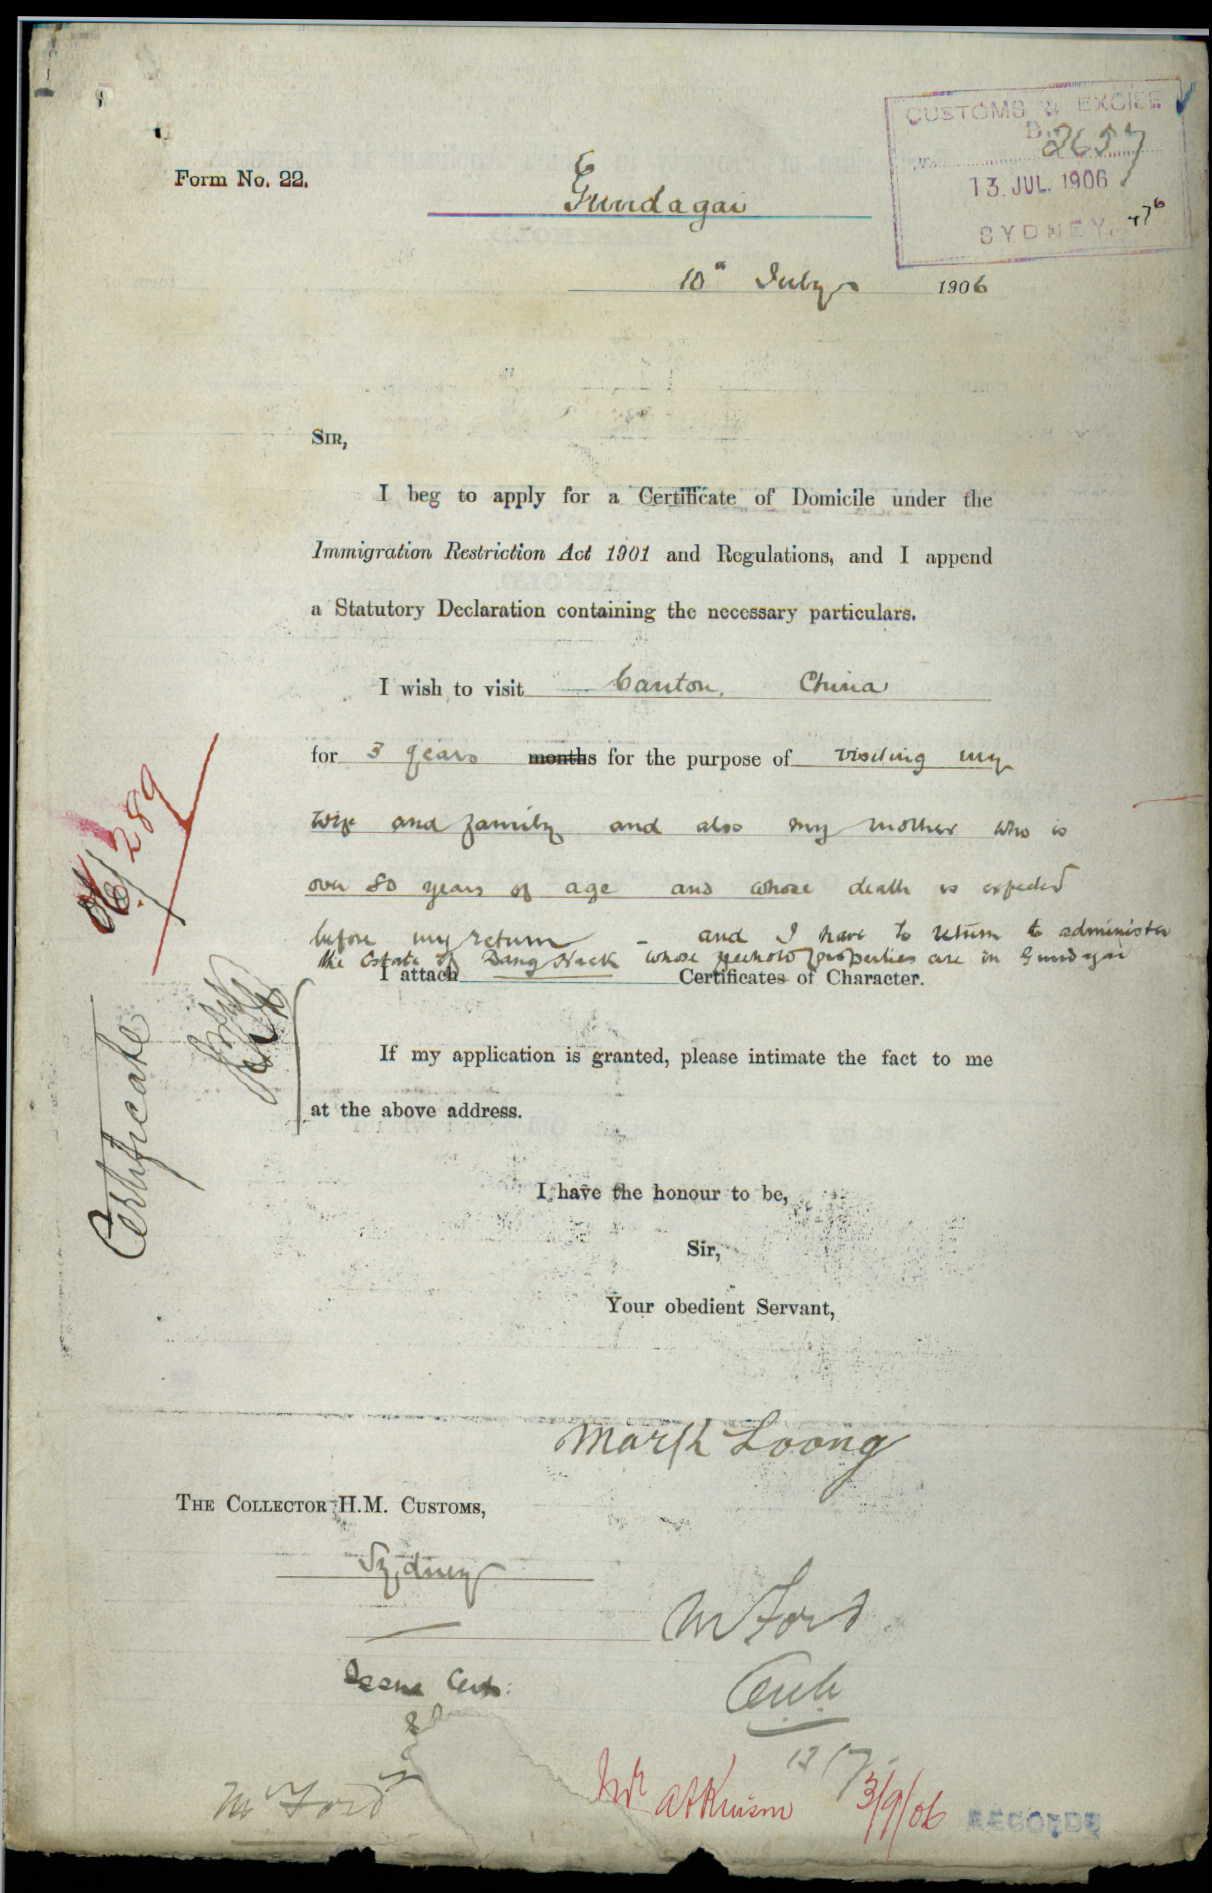 CUSTOMS & EXCISE
2657
13. JUL. 1906
SYDNEY
Form No. 22.
Gundagai
10th July 1906
SIR,
I beg to apply for a Certificate of Domicile under the
Immigration Restriction Act 1901 and Regulations, and I append
a Statutory Declaration containing the necessary particulars.
I wish to visit Canton, China
for 3 years months for the purpose of visiting my
wife and family and also my mother who is
over 80 years of age and whose death is expected
before my return - and I have to return to administer
the Estate of Dang Nack whose freehold properties are in Gundagai
I attach Certificates of Character.
If my application is granted, please intimate the fact to me
at the above address.
I have the honour to be,
Sir,
Your obedient Servant,
Marsh Loong
THE COLLECTOR H.M. CUSTOMS,
Sydney
06/289
Certificate
Mr Ford
Issue Cert.
Mr Ford
13/7
Mr Atkinson 3/9/06
RECORDS